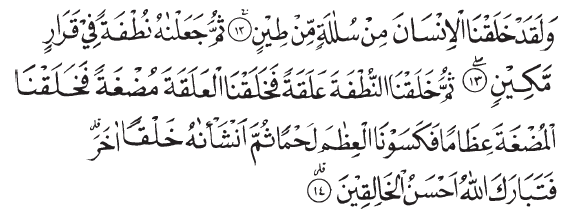 وَلَقَدْ خَلَقْنَا الْاِنْسَانَ مِنْ سُلٰلَةٍ مِّنْ طِيْنٍ ۚ ﴿١٢﴾ ثُمَّ جَعَلْنٰهُ نُطْفَةً فِيْ قَرَارٍ
مَّكِيْنٍ ۖ ﴿١٣﴾ ثُمَّ خَلَقْنَا النُّطْفَةَ عَلَقَةً فَخَلَقْنَا الْعَلَقَةَ مُضْغَةً فَخَلَقْنَا
الْمُضْغَةَ عِظَامًا فَكَسَوْنَا الْعِظٰمَ لَحْمًا ثُمَّ اَنْشَأْنٰهُ خَلْقًا اٰخَرَ ۗ
فَتَبَارَكَ اللّٰهُ اَحْسَنُ الْخَالِقِيْنَ ۗ ﴿١٤﴾